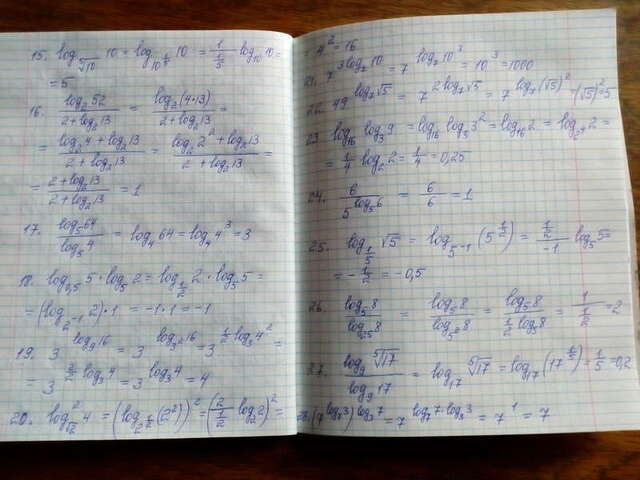 15. log_{\sqrt[5]{10}} 10 = log_{10^{1/5}} 10 = \frac{1}{\frac{1}{5}} log_{10} 10 =
= 5
16. \frac{log_2 52}{2 + log_2 13} = \frac{log_2 (4·13)}{2 + log_2 13} =
= \frac{log_2 4 + log_2 13}{2 + log_2 13} = \frac{log_2 2^2 + log_2 13}{2 + log_2 13} =
= \frac{2 + log_2 13}{2 + log_2 13} = 1
17. \frac{log_5 64}{log_5 4} = log_4 64 = log_4 4^3 = 3
18. log_{0,5} 5 · log_5 2 = log_{\frac{1}{2}} 2 · log_5 5 =
= (log_{2^{-1}} 2)·1 = -1·1 = -1
19. 3^{log_9 16} = 3^{log_{3^2} 16} = 3^{\frac{1}{2} log_3 4^2} =
= 3^{\frac{2}{2} log_3 4} = 3^{log_3 4} = 4
20. log^2_{\sqrt{2}} 4 = (log_{2^{\frac{1}{2}}} (2^2))^2 = (\frac{2}{\frac{1}{2}} log_2 2)^2 =
4^2 = 16
21. 7^{3 log_7 10} = 7^{log_7 10^3} = 10^3 = 1000
22. 49^{log_7 \sqrt{5}} = 7^{2 log_7 \sqrt{5}} = 7^{log_7 (\sqrt{5})^2} = (\sqrt{5})^2 = 5
23 log_{16} log_3 9 = log_{16} log_3 3^2 = log_{16} 2 = log_{2^4} 2 =
= \frac{1}{4} log_2 2 = \frac{1}{4} = 0,25
24. \frac{6}{5^{log_5 6}} = \frac{6}{6} = 1
25. log_{\frac{1}{5}} \sqrt{5} = log_{5^{-1}} (5^{\frac{1}{2}}) = \frac{\frac{1}{2}}{-1} log_5 5 =
= -\frac{1}{2} = -0,5
26. \frac{log_5 8}{log_{25} 8} = \frac{log_5 8}{log_{5^2} 8} = \frac{log_5 8}{\frac{1}{2} log_5 8} = \frac{1}{\frac{1}{2}} = 2
27. \frac{log_9 \sqrt[5]{17}}{log_9 17} = log_{17} \sqrt[5]{17} = log_{17} (17^{\frac{1}{5}}) = \frac{1}{5} = 0,2
28. (7^{log_7 3})^{log_3 7} = 7^{log_7 7 · log_3 3} = 7^1 = 7